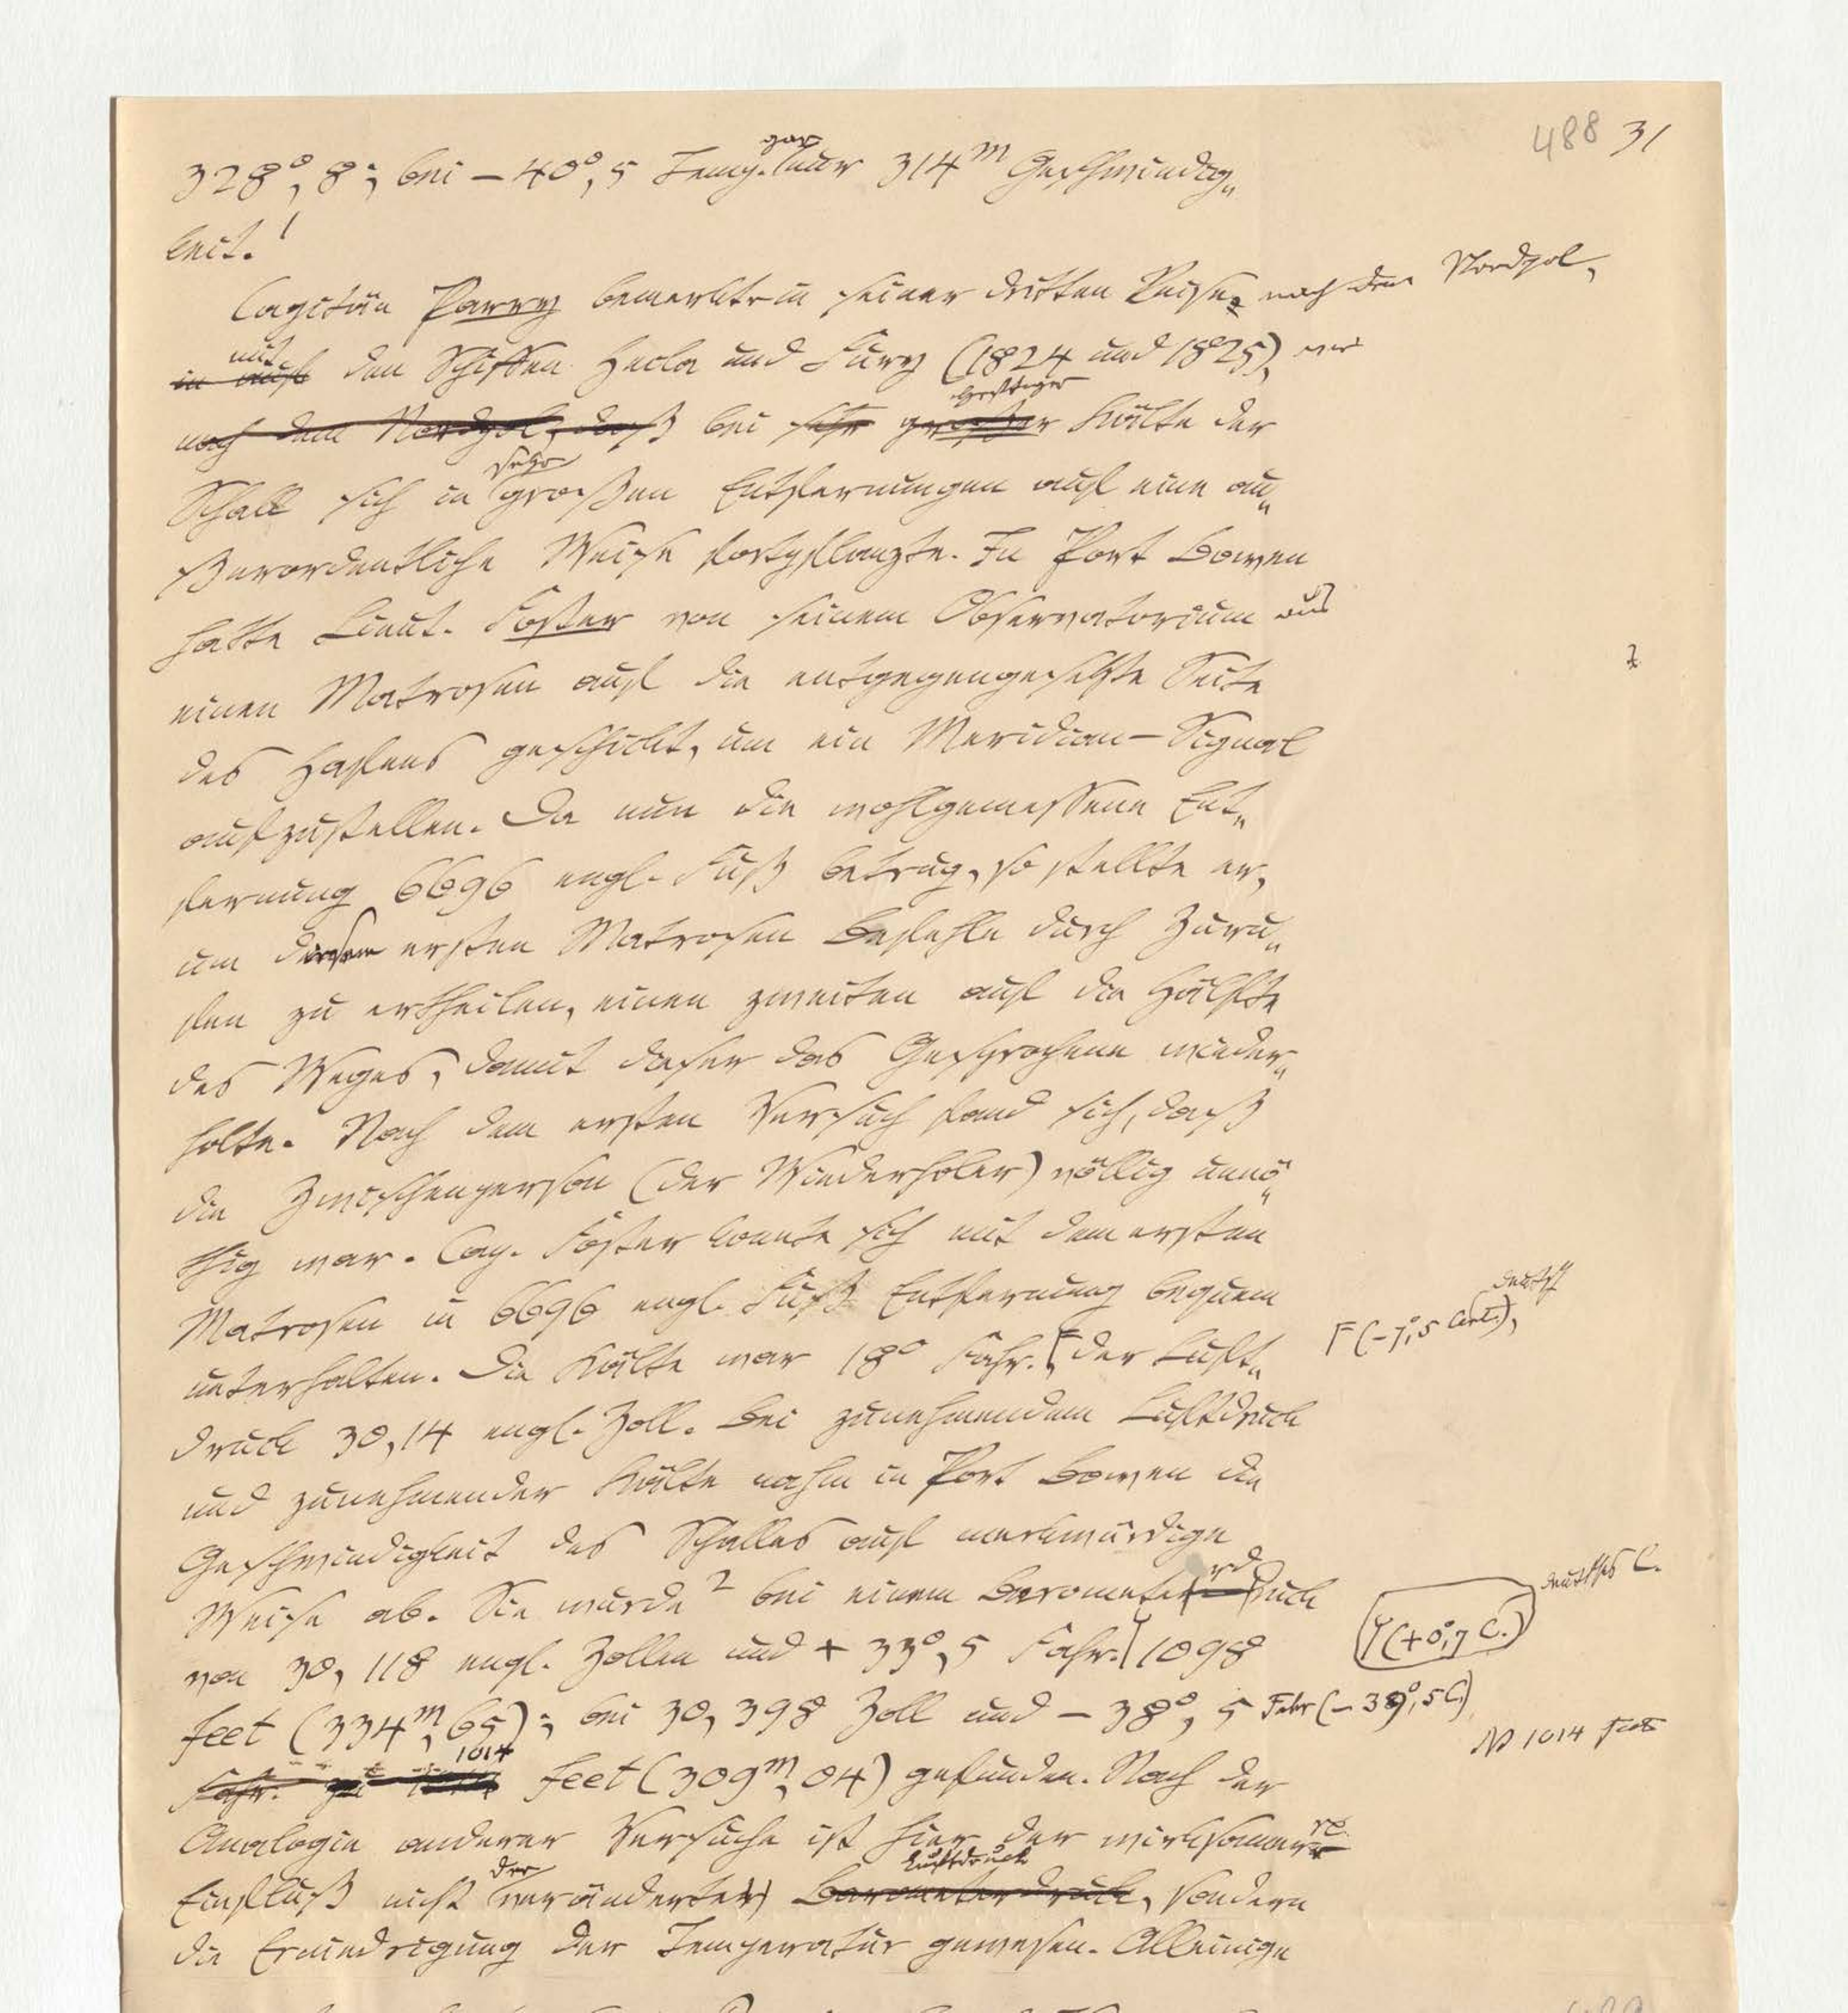 488 31
328°,8; bei – 40°,5 Temp. gar nur 314m Geschwindig„
keit.!
Capitän Parry bemerkte in seiner dritten Reise, nach dem Nordpol,
in auf mit den Schiffen Hecla und Fury (1824 und 1825),
nach dem Nordpol, daß bei sehr großer heftiger Kälte der
Schall sich in sehr großen Entfernungen auf eine au„
ßerordentliche Weise fortpflanzte. In Port Bowen
hatte Lieut. Foster von seinem Observatorium aus
einen Matrosen auf die entgegengesetzte Seite
des Hafens geschickt, um ein Meridian–Signal
aufzustellen. Da nun die wohlgemessene Ent„
fernung 6696 engl. Fuß betrug, so stellte er,
um diesem ersten Matrosen Befehle durch Zuru„
fen zu ertheilen, einen zweiten auf die Hälfte
des Weges, damit dieser das Gesprochene wieder„
holte. Nach dem ersten Versuch fand sich, daß
die Zwischenperson (der Wiederholer) völlig unnö„
thig war. Cap. Foster konnte sich mit dem ersten
Matrosen in 6696 engl. Fuß Entfernung bequem
unterhalten. Die Kälte war 18° Fahr. der Luft„
deutsch
F (–7°,5 Cent.),
druck 30,14 engl. Zoll. Bei zunehmendem Luftdruck
und zunehmender Kälte nahm in Port Bowen die
Geschwindigkeit des Schalles auf merkwürdige
Weise ab. Sie wurde 2 bei einem Barometerdruck
deutsches C.
(+0°,7 C.)
von 30, 118 engl. Zollen und + 33°, 5 Fahr. 1098
feet (334m, 65); bei 30, 398 Zoll und – 38°, 5 Fahr (– 39°,5 C.)
1014 feet
Fahr. zu 1014 feet (309m, 04) gefunden. Nach der
Analogie anderer Versuche ist hier der wirksamere
Einfluß nicht der veränderte Barometerdruck Luftdruck, sondern
die Erniedrigung der Temperatur gewesen. Alleinige